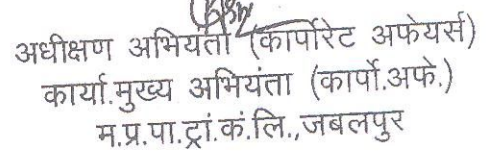 अधीक्षण अभियंता (कार्पोरेट अफेयर्स)
कार्या.मुख्य अभियंता (कार्पो.अफे.)
म.प्र.पा.ट्रां.कं.लि.,जबलपुर